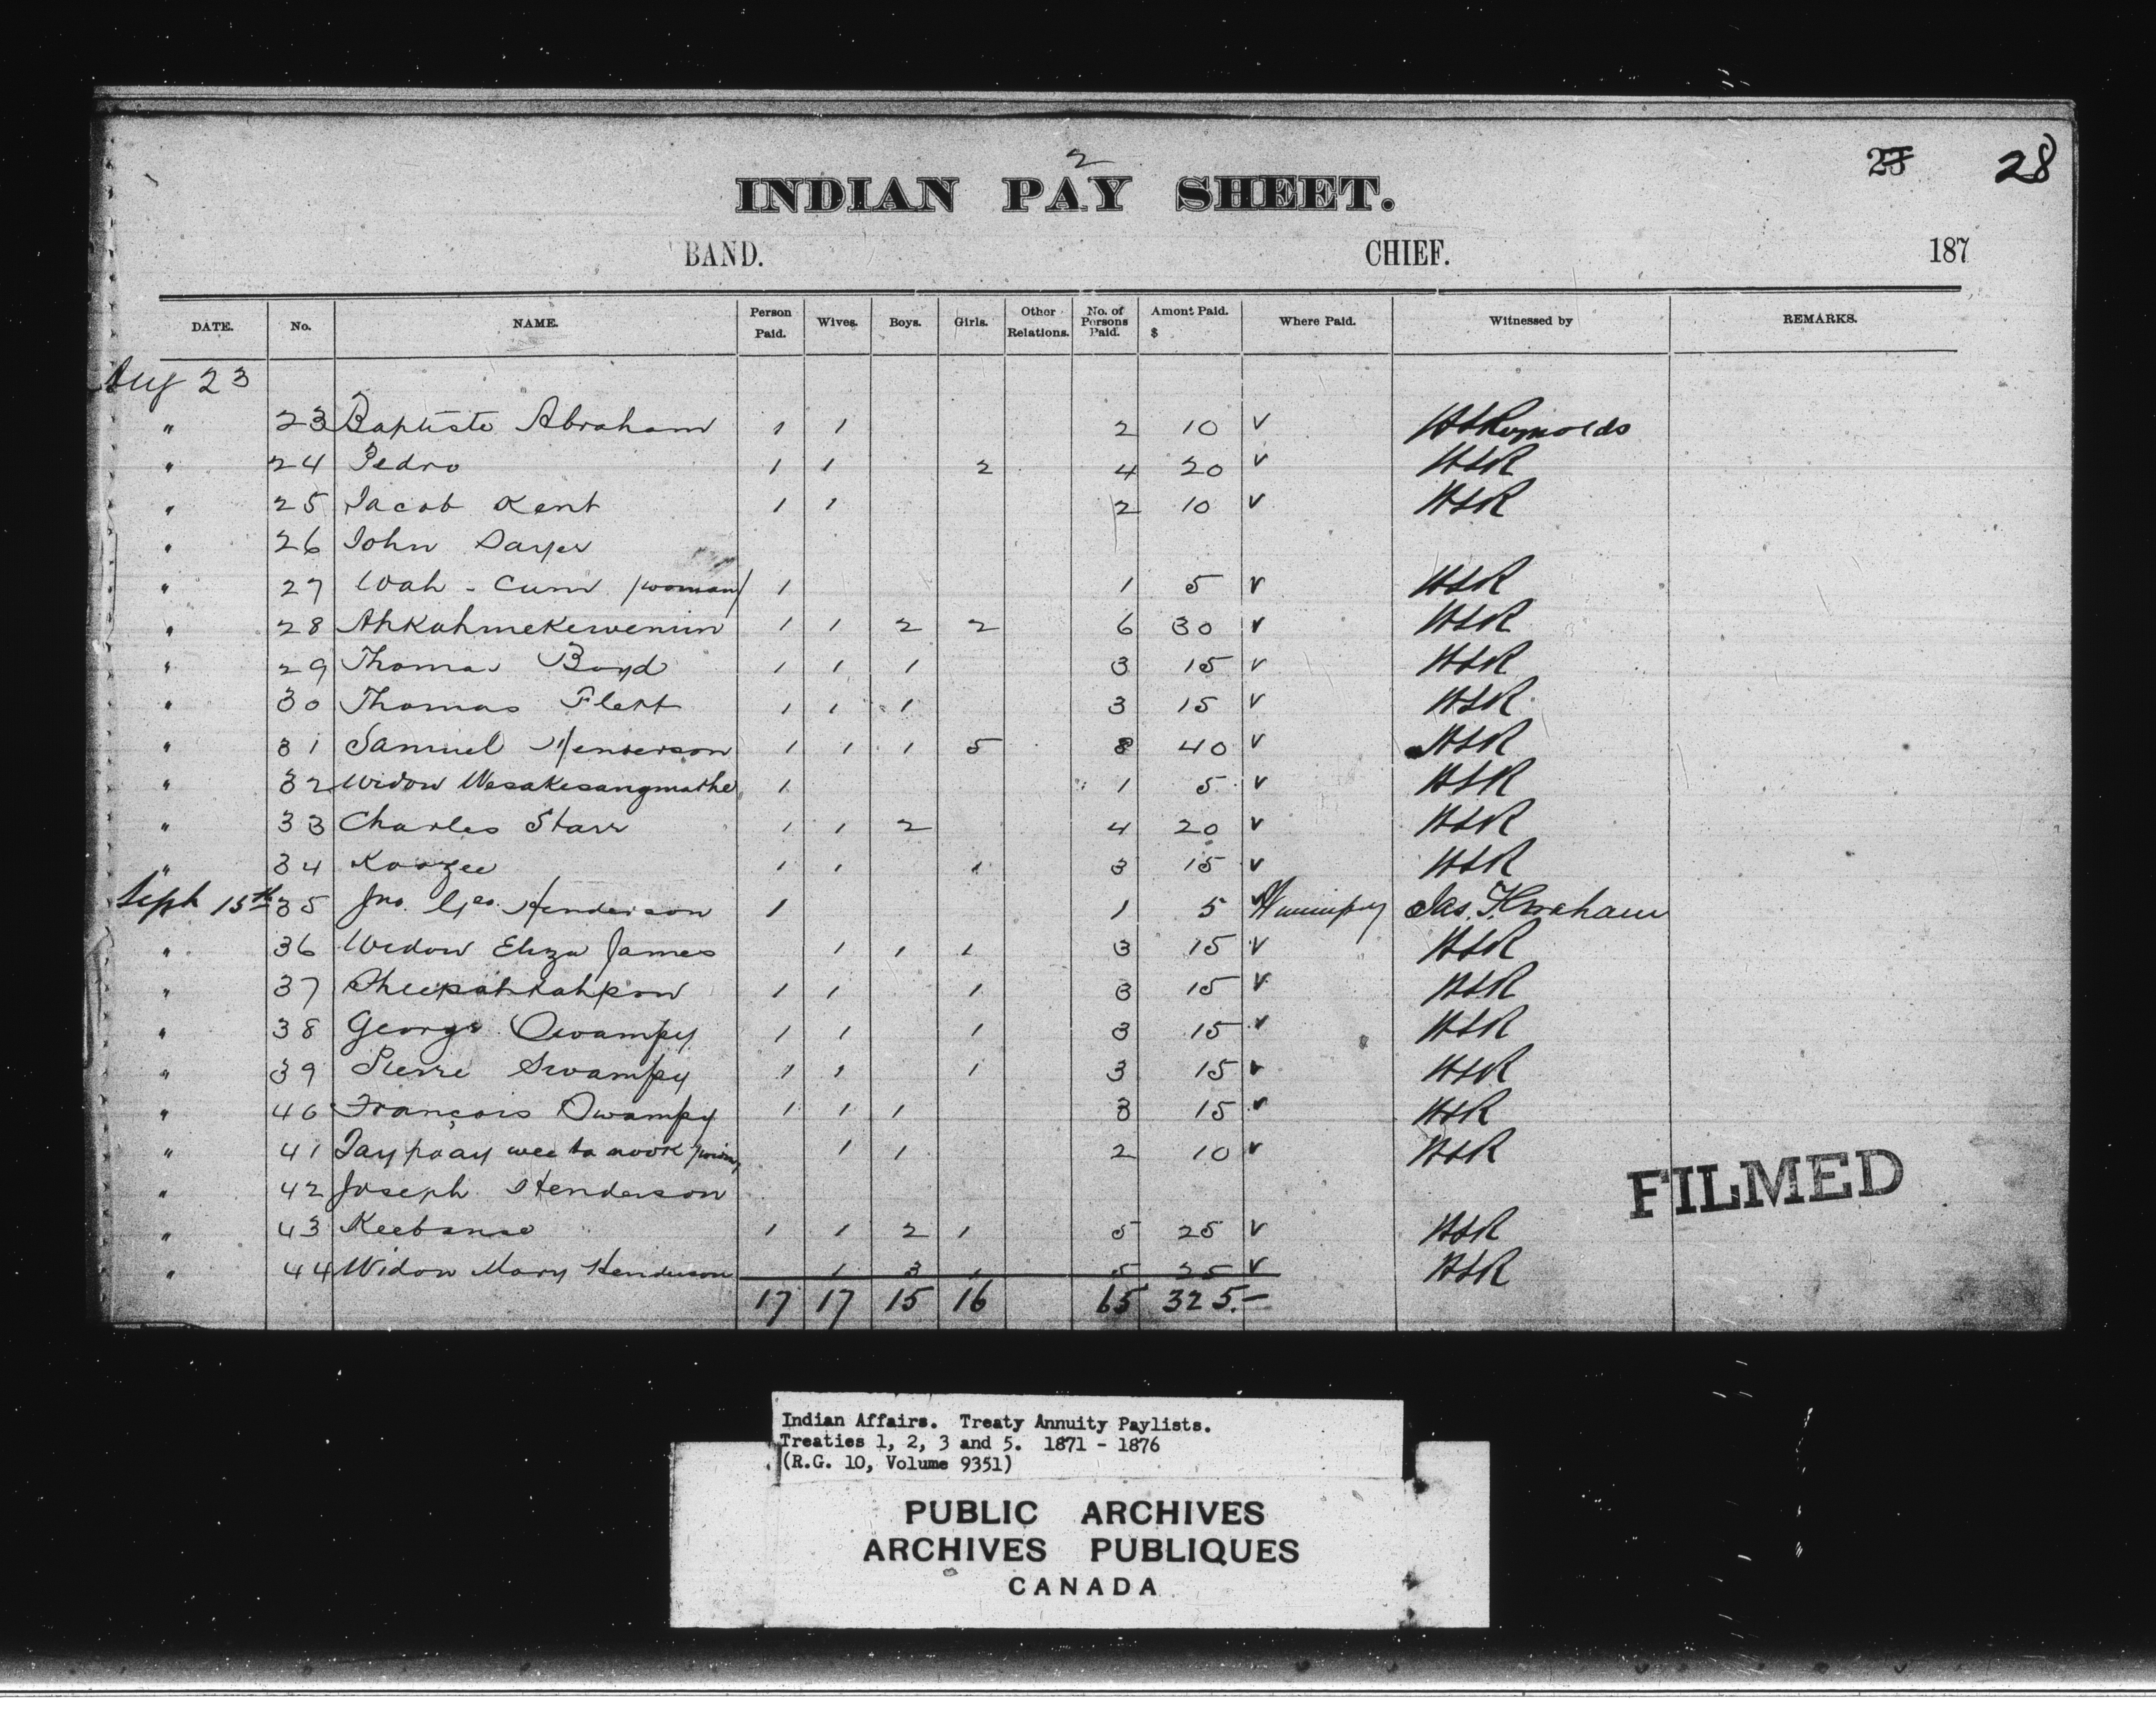 2
23 28
INDIAN PAY SHEET.
BAND. CHIEF. 187
DATE. No. NAME. Person Paid. Wives. Boys. Girls. Other Relations. No. of Persons Paid. Amont Paid. $ Where Paid. Witnessed by REMARKS.
Aug 23
" 23 Baptiste Abraham 1 1 2 10 v HSReynolds
" 24 Pedro 1 1 2 4 20 v HSR
" 25 Jacob Kent 1 1 2 10 v HSR
" 26 John Sayer
" 27 Wah-cum (woman) 1 1 5 v HSR
" 28 Ahkahmekewenin 1 1 2 2 6 30 v HSR
" 29 Thomas Boyd 1 1 1 3 15 v HSR
" 30 Thomas Flett 1 1 1 3 15 v HSR
" 31 Samuel Henderson 1 1 1 5 8 40 v HSR
" 32 Widow Wesakesangmathe 1 1 5 v HSR
" 33 Charles Starr 1 1 2 4 20 v HSR
" 34 Koozee 1 1 1 3 15 v HSR
Sept 15th 35 Jno. Geo. Henderson 1 1 5 v Winnipeg Jas. F. Graham
" 36 Widow Eliza James 1 1 1 3 15 v HSR
" 37 1 1 1 3 15 v HSR
" 38 George Swampy 1 1 1 3 15 v HSR
" 39 Pierre Swampy 1 1 1 3 15 v HSR
" 40 François Swampy 1 1 1 3 15 v HSR
" 41 wee ta nook 1 1 2 10 v HSR
" 42 Joseph Henderson
" 43 Keebanse 1 1 2 1 5 25 v HSR
" 44 Widow Mary Henderson 1 3 1 5 25 v HSR
17 17 15 16 65 325.—
FILMED
Indian Affairs. Treaty Annuity Paylists.
Treaties 1, 2, 3 and 5. 1871 - 1876
(R.G. 10, Volume 9351)
PUBLIC ARCHIVES
ARCHIVES PUBLIQUES
CANADA